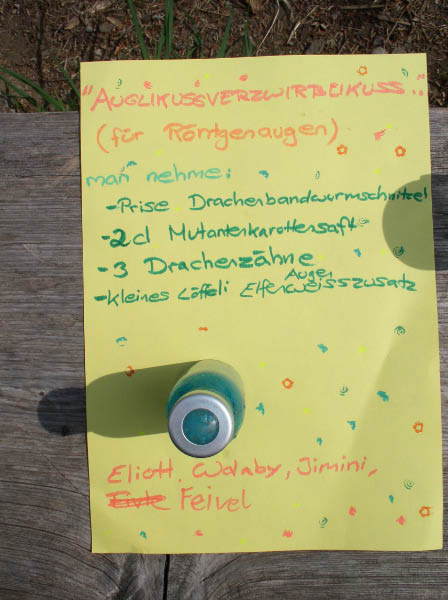 "AUGLIKUSSVERZWIRBLIKUSS"
(für Röntgenaugen)
man nehme:
-Prise Drachenbandwurmschnitzel
-2cl Mutantenkarottensaft
-3 Drachenzähne
-kleines Löffeli Elfenaugenweisszusatz
Eliott, Walnaby, Jimini,
Feivel